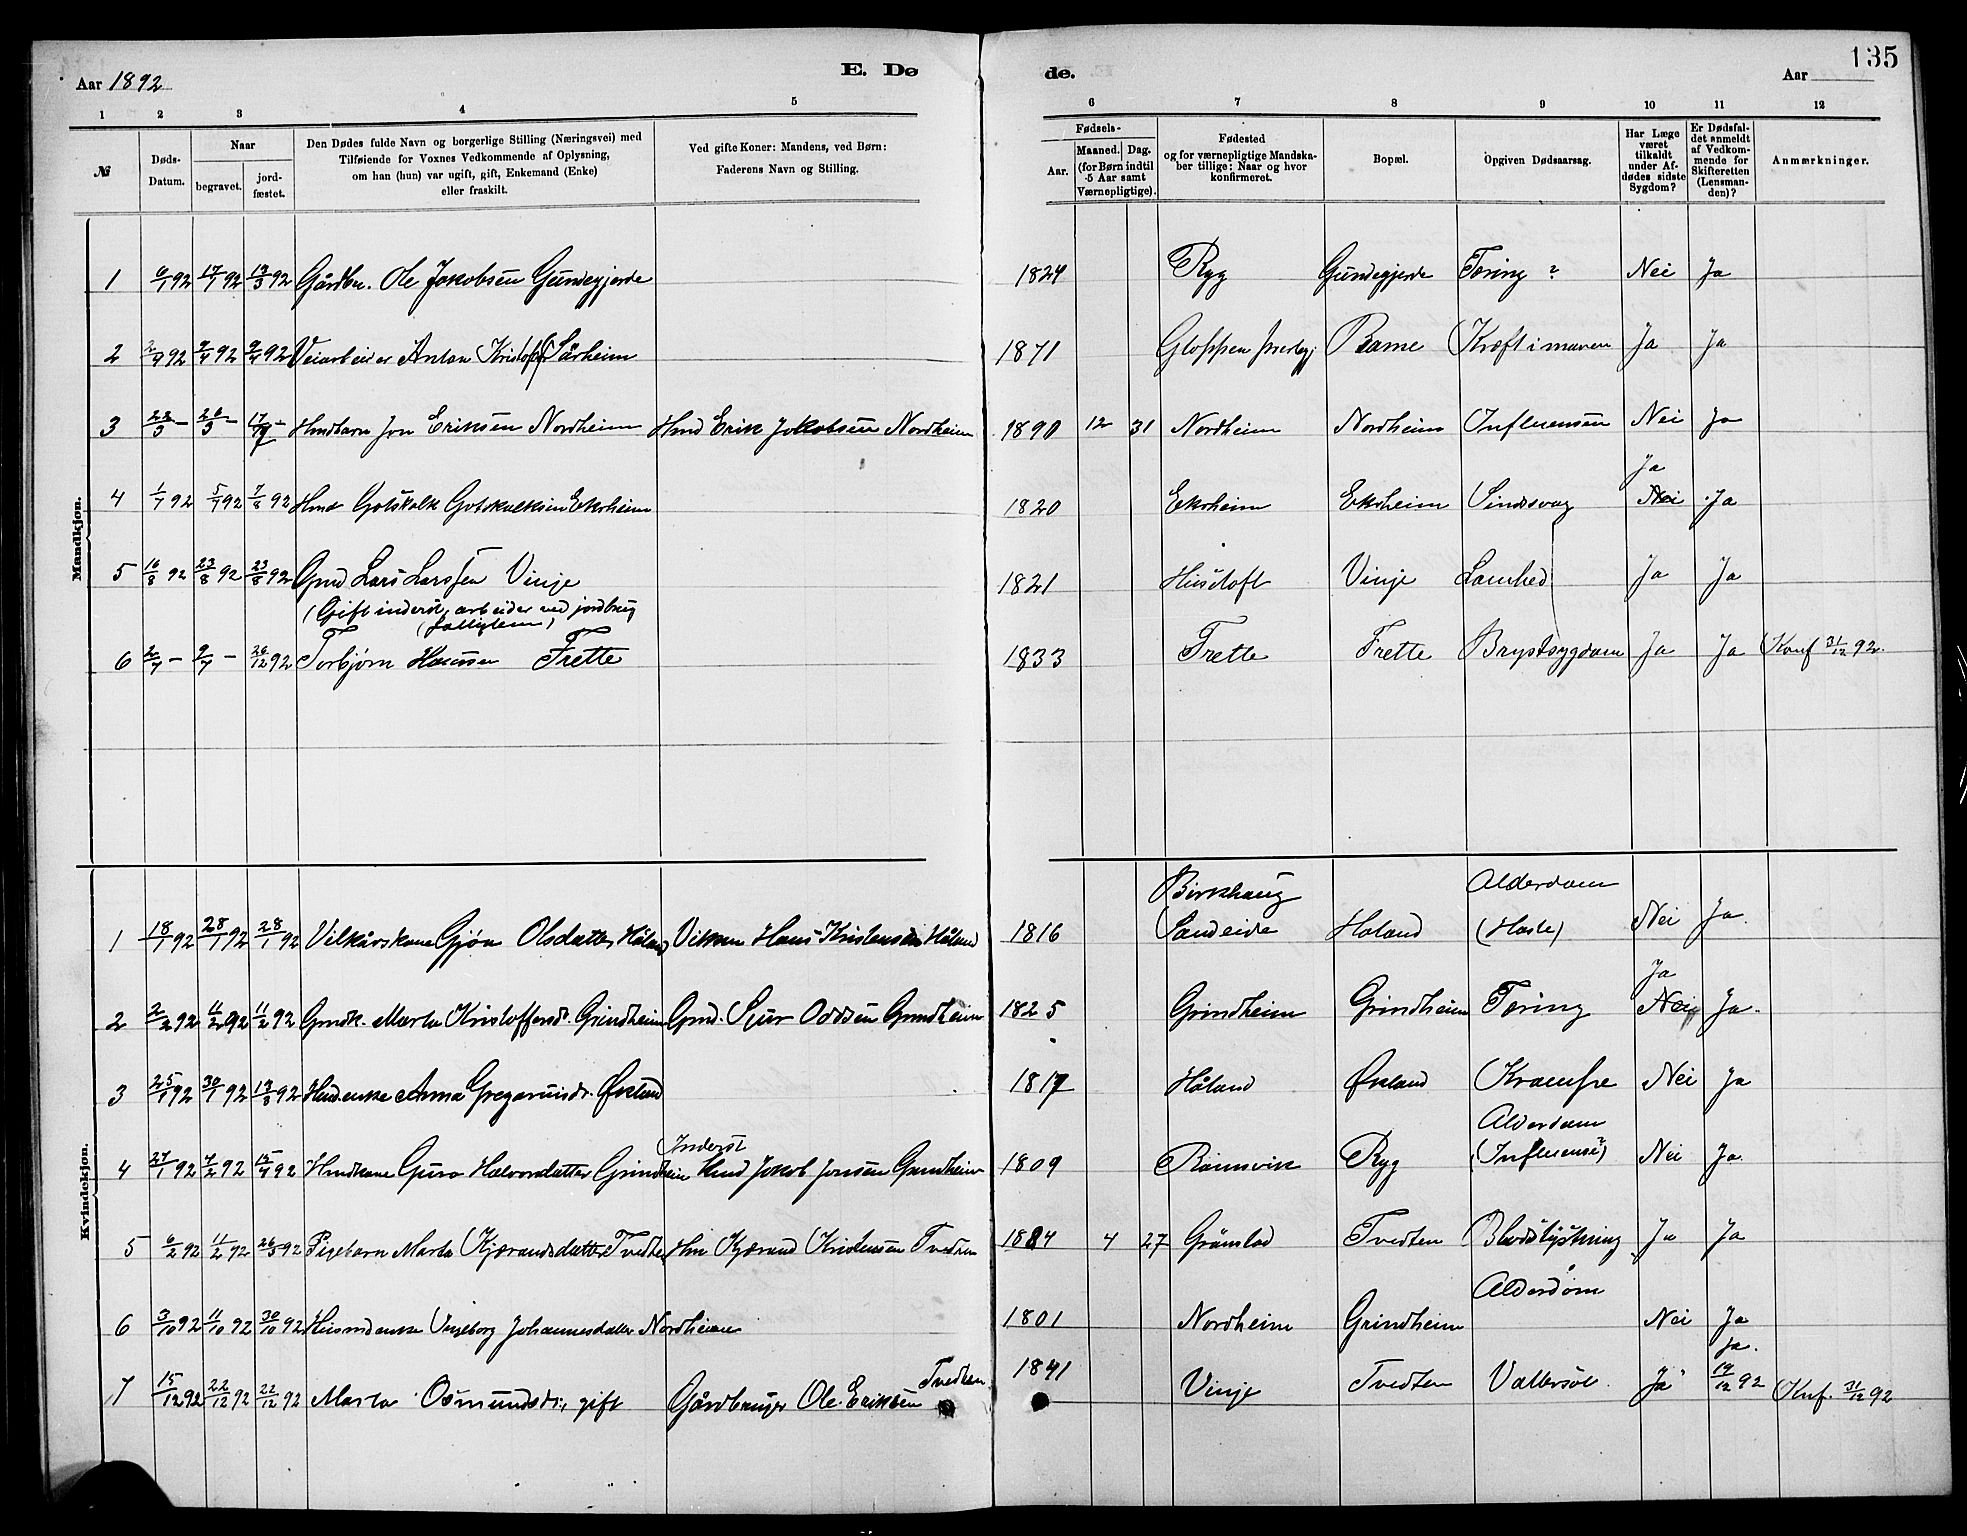 Aar 1892
E. Dø
de.
Aar
135
1 2 3 4 5 6 7 8 9 10 11 12
№
Døds-Datum.
Naar
begravet.
jord-fæstet.
Den Dødes fulde Navn og borgerlige Stilling (Næringsvei) med
Tilføiende for Voxnes Vedkommende af Oplysning,
om han (hun) var ugift, gift, Enkemand (Enke)
eller fraskilt.
Ved gifte Koner: Mandens, ved Børn:
Faderens Navn og Stilling.
Fødsels-
Aar.
Maaned. Dag.
(for Børn indtil
5 Aar samt
Værnepligtige).
Fødested
og for værnepligtige Mandska-
ber tillige: Naar og hvor
konfirmeret.
Bopæl.
Opgiven Dødsaarsag.
Har Læge
været
tilkaldt
under Af-
dødes sidste
Sygdom?
Er Dødsfal-
det anmeldt
af Vedkom-
mende for
Skifteretten
(Lensman-
den)?
Anmærkninger.
Mandkjøn.
1 6/1 92 17/1 92 13/3 92 Gårdbr. Ole Jakobsen Gundegjerde 1824 Ryg Gundegjerde Tæring ? Nei Ja
2 2/4 92 9/4 92 9/4 92 Veiarbeider Anton Kristoff Sårheim 1871 Gloppen Rame Kræft i maven Ja Ja
3 22/3 - 26/3 - 17/7 - Hmdbarn Jon Eriksen Nordheim Hmd Erik Jakobsen Nordheim 1890 12 31 Nordheim Nordheim Influensen Nei Ja
Ja
4 1/7 92 5/7 92 7/8 92 Hmd Gotskalk Gotskalksen Ekrheim 1820 Ekrheim Ekrheim Sindsvag Nei Ja
5 16/8 92 23/8 92 23/8 92 Gmd Lars Larssen Vinje 1821 Husetoft Vinje Lamhed Ja Ja
(Gift inderst, arbeider ved jordbrug
6 2/7 - 9/7 - 26/12 92 Torbjørn Hansen Frette 1833 Frette Frette Brystsygdom Ja Ja Knf 31/12 92.
Kvindekjøn.
Birkhaug Alderdom
1 18/1 92 28/1 92 28/1 92 Vilkårskone Gjøa Olsdatter Håland Vilkm Hans Kristensen Håland 1816 Sandeide Håland (Hoste) Nei Ja.
Ja
2 2/2 92 11/2 92 11/2 92 Gmdk. Marta Kristoffersdt. Grindheim Gmd. Sjur Oddsen Grindheim 1825 Grindheim Grindheim Tæring Nei Ja.
3 25/1 92 30/1 92 13/3 92 Hmdenke Anna Gregoriusdt. Økland 1817 Håland Økland Krampe Nei Ja
Inderst Alderdom
4 27/1 92 7/2 92 15/4 92 Hmdkone Guro Halvorsdatter Grindheim Hmd Jakob Jonsen Grindheim 1809 Rømsvik Ryg (Influensa?) Nei Ja.
5 6/2 92 11/2 92 26/3 92 Pigebarn Marta Kjærandsdatter Tvedten Hm Kjærand Kristensen Tvedten 1884 4 27 Grønstad Tvedten Blodstyrtning Ja Ja
Alderdom
6 3/10 92 11/10 92 30/10 92 Husmdenke Ingeborg Johannesdatter Nordheim 1801 Nordheim Grindheim Nei Ja
Tvedten Ja.
7 15/12 92 22/12 92 22/12 92 Marta Osmundsdt., gift Gårdbruger Ole Eriksen 1841 Vinje Tvedten Vattersot Ja 19/12 92 Knf. 31/12 92